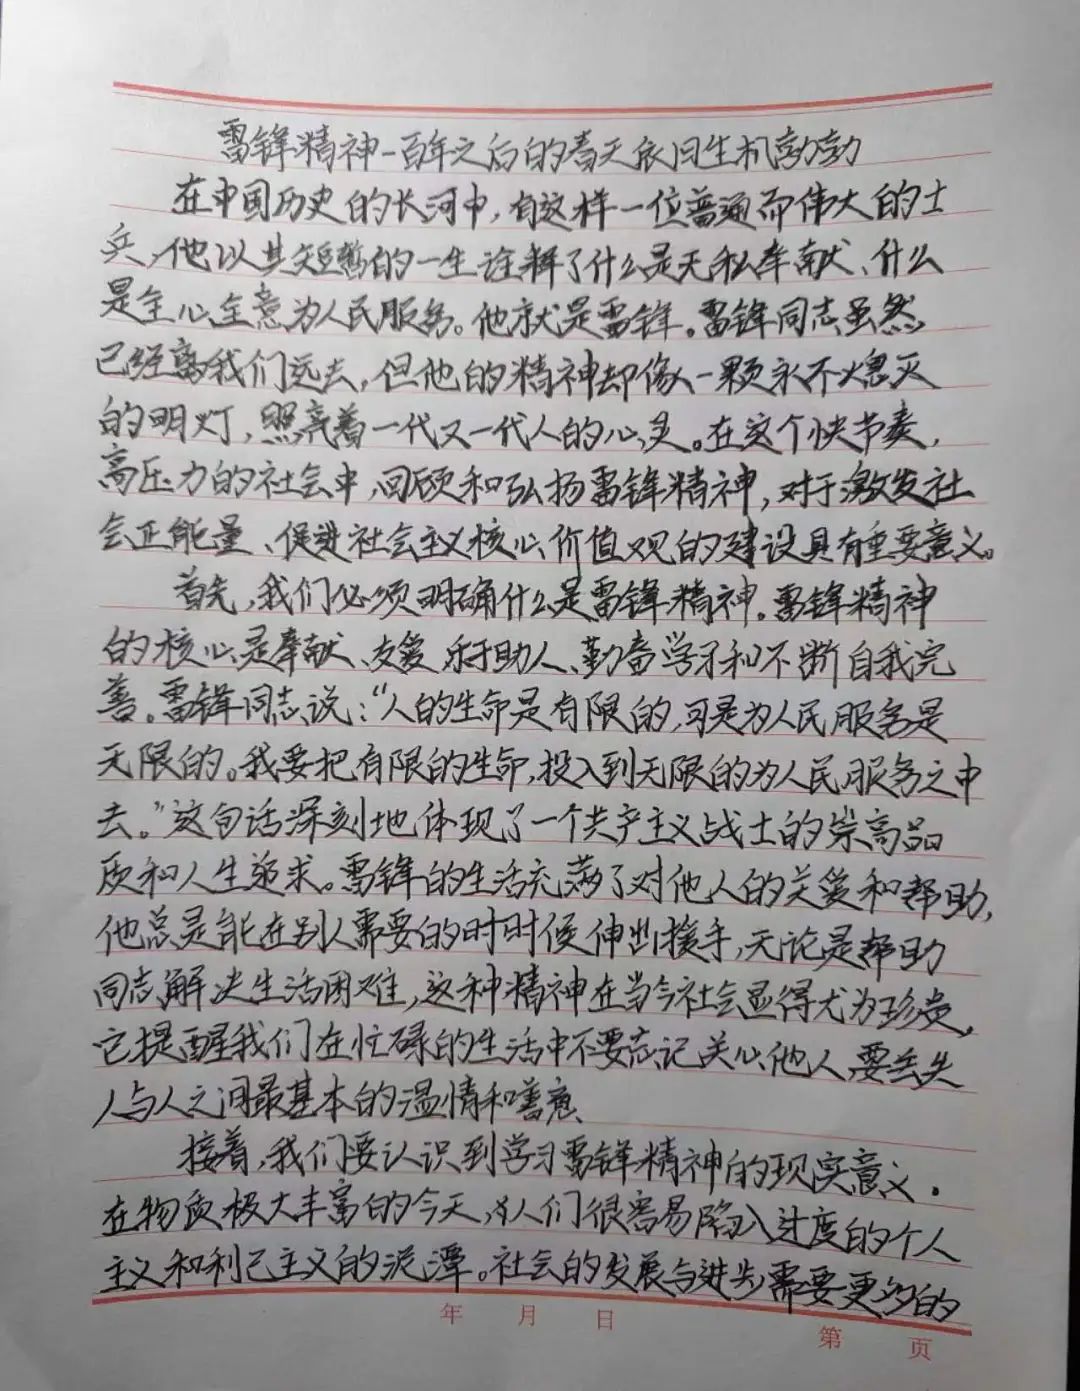 雷锋精神-百年之后的春天依旧生机勃勃
在中国历史的长河中,有这样一位普通而伟大的士
兵,他以其短暂的一生诠释了什么是无私奉献、什么
是全心全意为人民服务。他就是雷锋。雷锋同志虽然
已经离我们远去,但他的精神却像一颗永不熄灭
的明灯,照亮着一代又一代人的心灵。在这个快节奏,
高压力的社会中,回顾和弘扬雷锋精神,对于激发社
会正能量、促进社会主义核心价值观的建设具有重要意义。
首先,我们必须明确什么是雷锋精神。雷锋精神
的核心是奉献、友爱、乐于助人、勤奋学习和不断自我完
善。雷锋同志说:“人的生命是有限的,可是为人民服务是
无限的。我要把有限的生命,投入到无限的为人民服务之中
去。”这句话深刻地体现了一个共产主义战士的崇高品
质和人生追求。雷锋的生活充满了对他人的关爱和帮助,
他总是能在别人需要的时时候伸出援手,无论是帮助
同志解决生活困难,这种精神在当今社会显得尤为珍贵,
它提醒我们在忙碌的生活中不要忘记关心他人,要丢失
人与人之间最基本的温情和善意、
接着,我们要认识到学习雷锋精神的现实意义.
在物质极大丰富的今天,人们很容易陷入过度的个人
主义和利己主义的泥潭。社会的发展与进步需要更多的
年 月 日
第 页